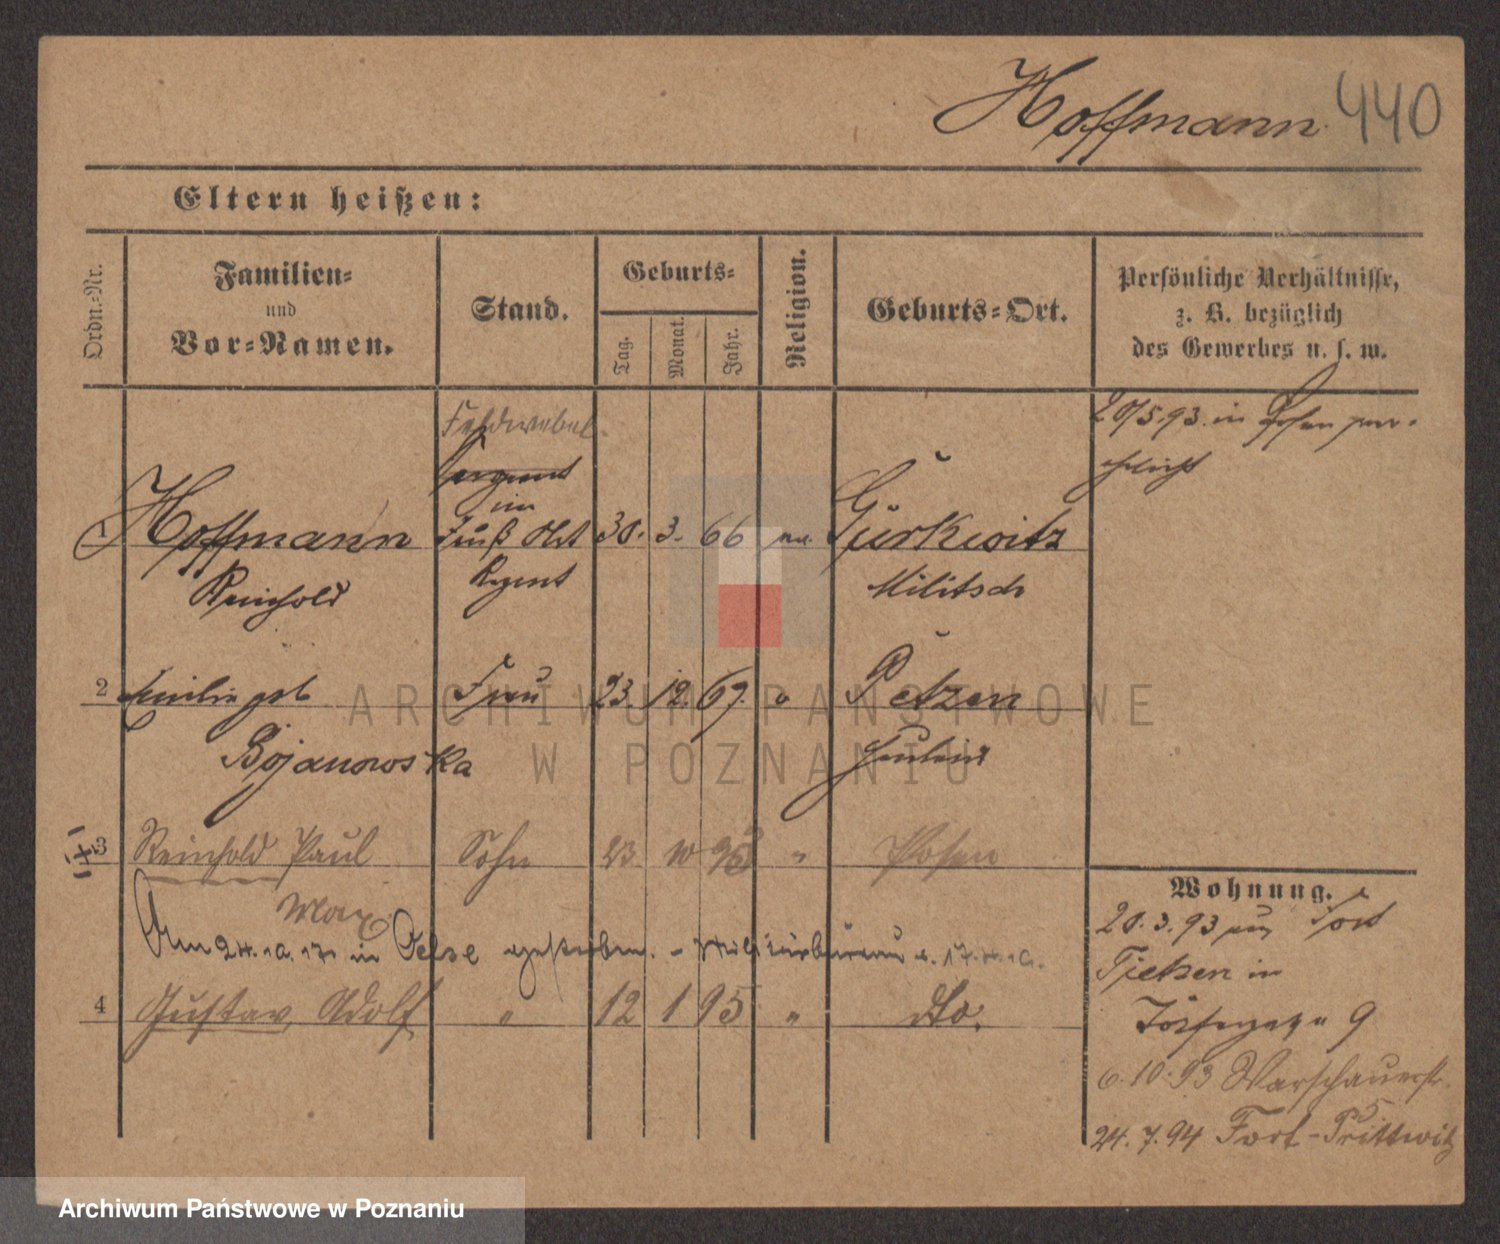 Hoffmann. 440
Eltern heißen:
Ordn.-Nr.
Familien-
und
Vor-Namen.
Stand.
Geburts-
Tag.
Monat.
Jahr.
Religion.
Geburts-Ort.
Persönliche Verhältnisse,
z. B. bezüglich
des Gewerbes u. s. w.
Feldwebel
Sergeant
im
Fuß Art
Regent
1 Hoffmann 30. 3. 66 Gürkwitz
Reinhold
Militsch
20/5.93. in Posen ver-
ehelicht
2 Emilie geb Frau 23. 12. 67. Petzen
Bojanowska
3 Reinhold Paul Sohn 23 10 93 " Posen
Max
Am 24.10.17. in Oels gestorben. - Militärbüro v. 17.
4 Gustav Adolf " 12 1 95 " dto.
Wohnung.
20.3.93 Fort
Tietzen in
9
6.10.93 Warschauerstr.
24.7.94 Fort-Prittwitz
ARCHIWUM PAŃSTWOWE
W POZNANIU
Archiwum Państwowe w Poznaniu